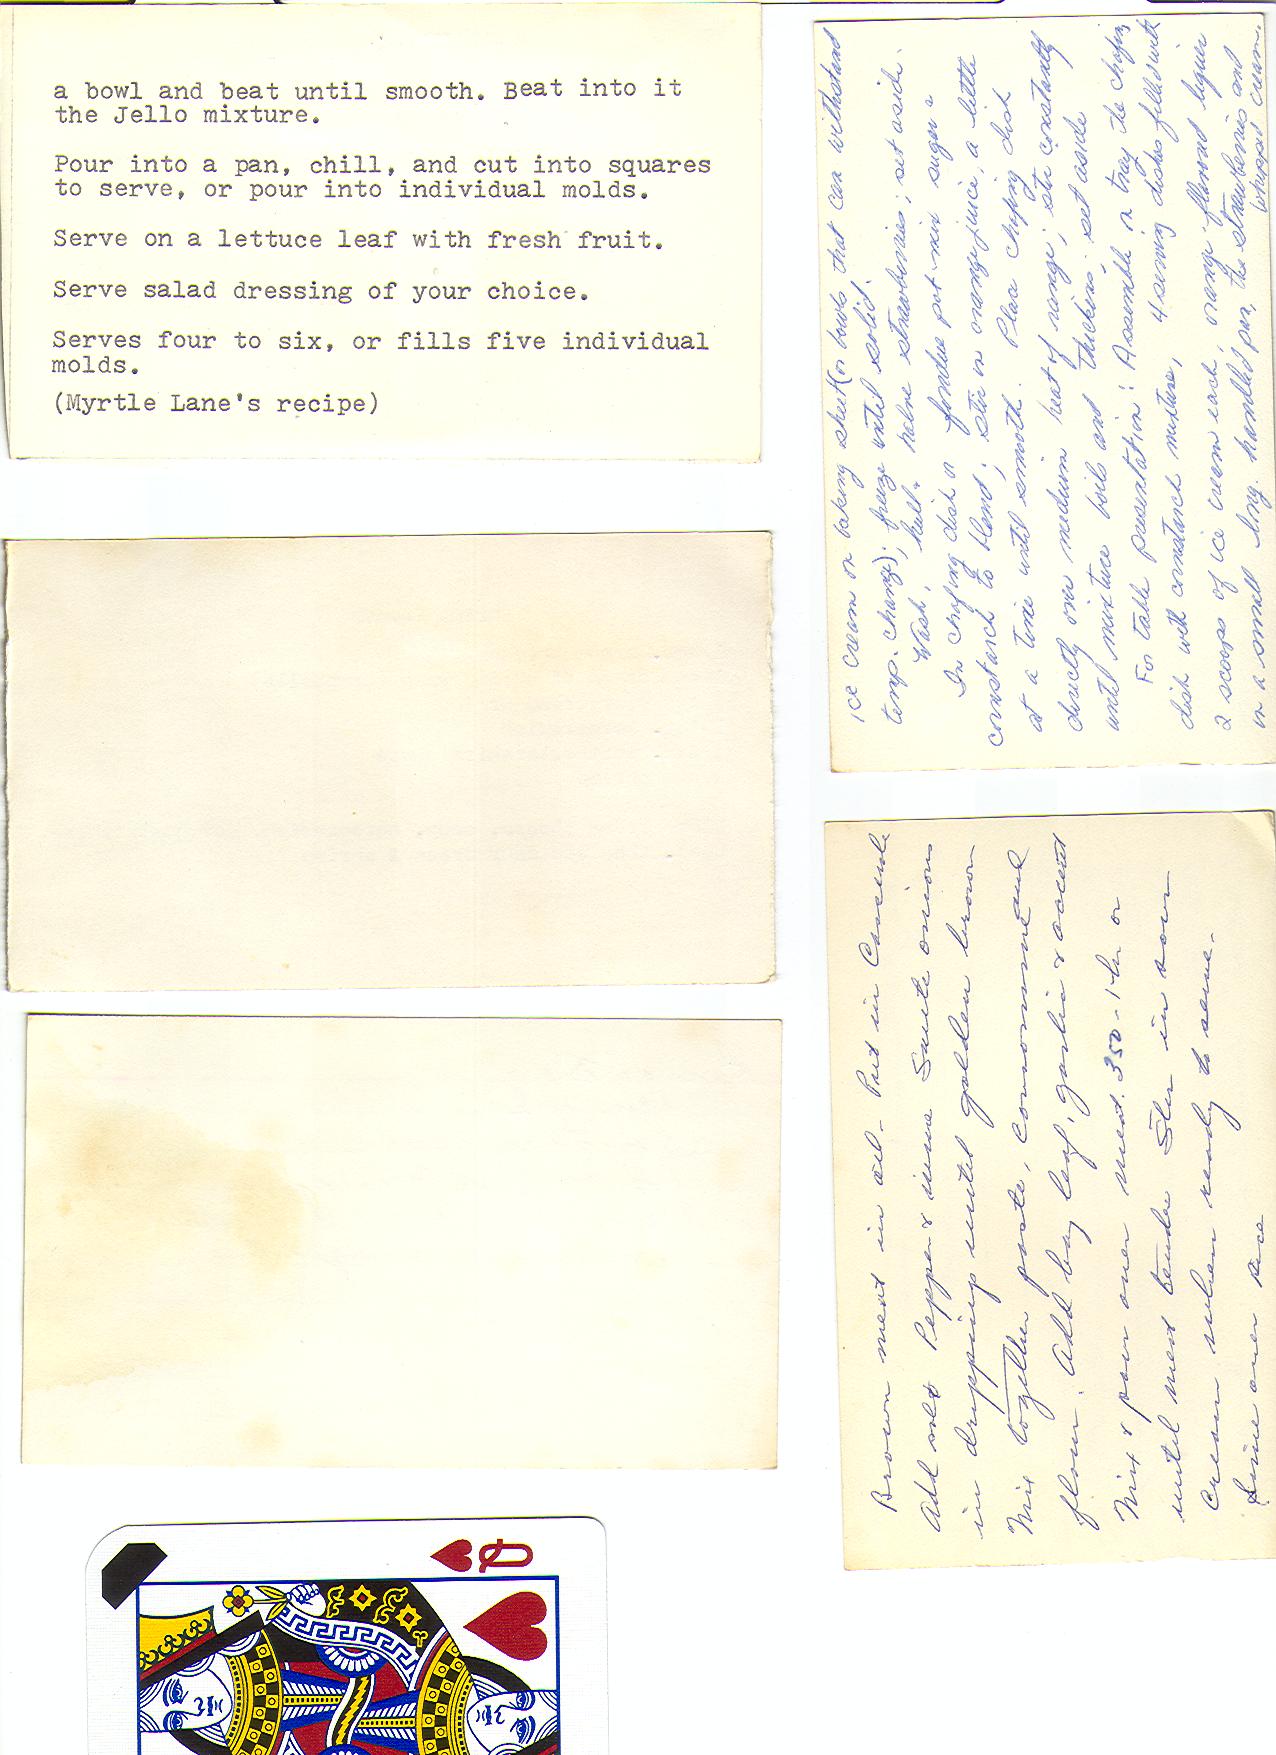 a bowl and beat until smooth. Beat into it
the Jello mixture.
Pour into a pan, chill, and cut into squares
to serve, or pour into individual molds.
Serve on a lettuce leaf with fresh fruit.
Serve salad dressing of your choice.
Serves four to six, or fills five individual
molds.
(Myrtle Lane's recipe)
ice cream on baking sheet (or bowls that can withstand
temp. change); freeze until solid.
Wash, hull & halve strawberries; set aside.
In chafing dish or fondue pot mix sugar &
cornstarch to blend; stir in orange juice, a little
at a time until smooth. Place chafing dish
directly over medium heat of range; stir constantly
until mixture boils and thickens; set aside
For table presentation: Assemble on tray the chafing
dish with cornstarch mixture, 4 serving dishes filled with
2 scoops of ice cream each, orange flavored liquer
in a small long-handled pan, the strawberries and
whipped cream.
Brown meat in oil - Put in Casserole
Add salt Pepper & Saute onions
in drippings until golden brown
Mix together paste, consommé and
flour. Add bay leaf, garlic & accent
Mix & pour over meat. 350 - 1 hr or
until meat tender Stir in sour
Cream when ready to serve.
Serve over rice
Q